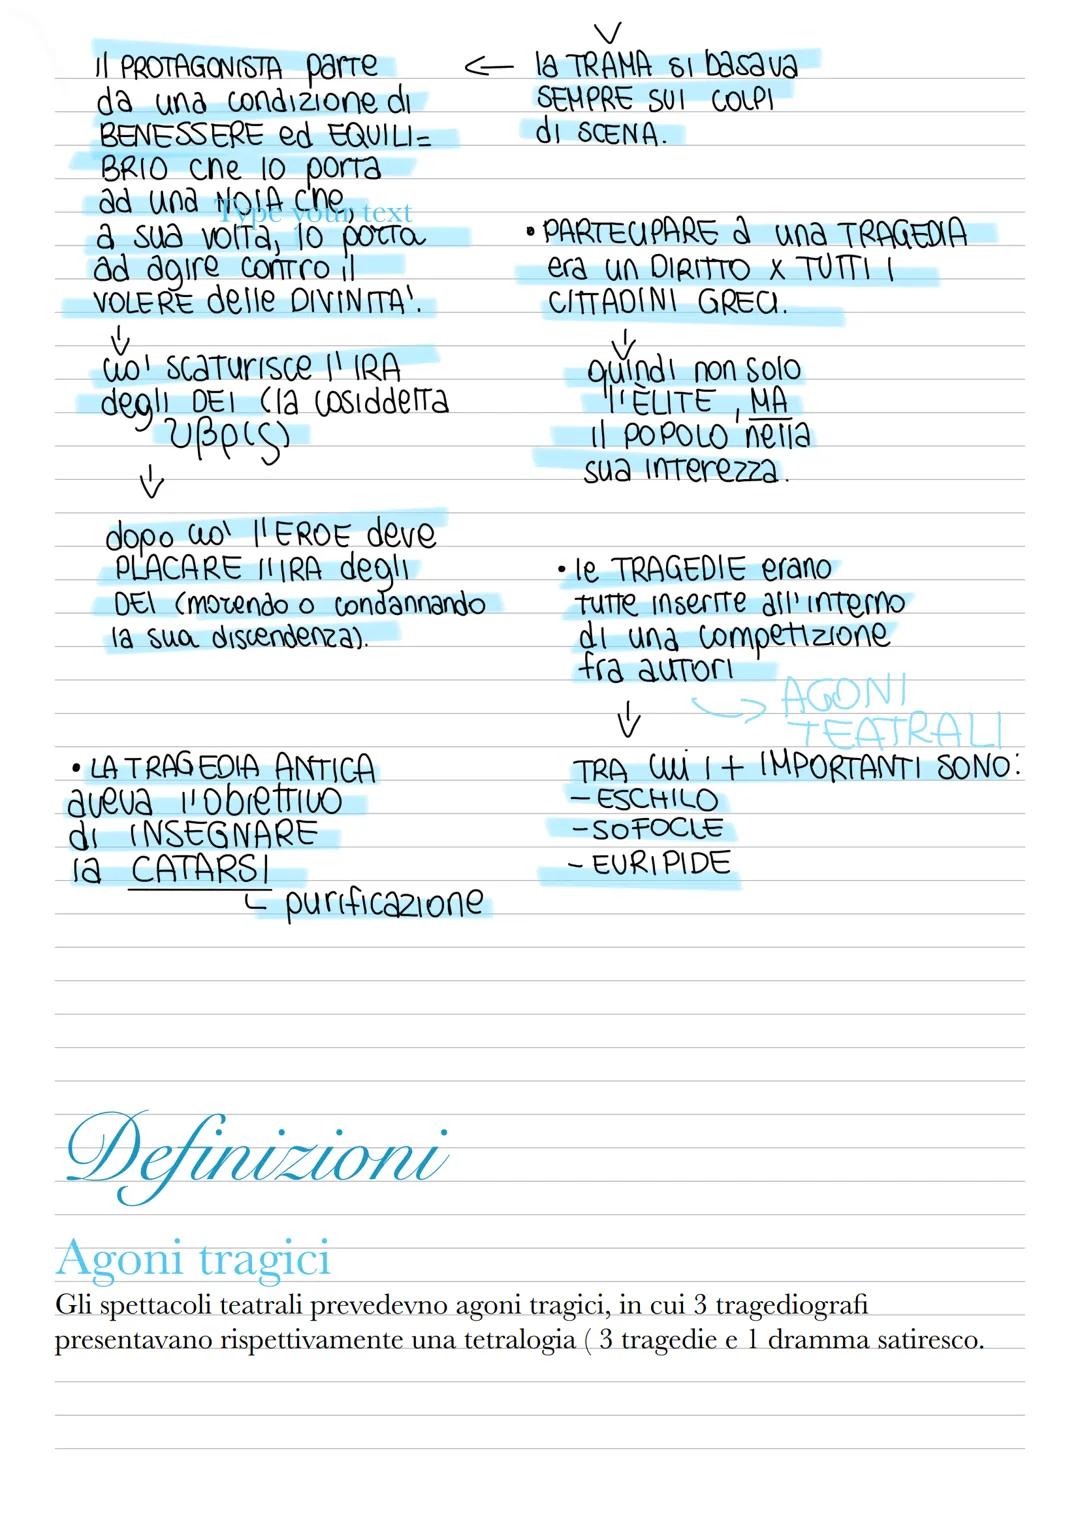 la TRAMA si basava
SEMPRE SUI COLPI
di SCENA.
il PROTAGONISTA parte
da una condizione di
BENESSERE ed EQUILI=
BRIO che lo porta
ad una NOIA che,
Type your text
a sua volta, lo porta
ad agire contro il
VOLERE delle DIVINITA'.
cio' scaturisce l'IRA
degli DEI (la cosiddetta
υβρις)
dopo cio' l'EROE deve
PLACARE l'IRA degli
DEI (morendo o condannando
la sua discendenza).
• LA TRAGEDIA ANTICA
aveva l'obiettivo
di INSEGNARE
la CATARSI
purificazione
• PARTECIPARE a una TRAGEDIA
era un DIRITTO x TUTTI I
CITTADINI GRECI.
quindi non solo
l'ÈLITE, MA
il POPOLO nella
sua interezza.
• le TRAGEDIE erano
tutte inserite all'interno
di una competizione
fra autori
AGONI
TEATRALI
TRA cui i + IMPORTANTI SONO:
- ESCHILO
- SOFOCLE
- EURIPIDE
Definizioni
Agoni tragici
Gli spettacoli teatrali prevedevno agoni tragici, in cui 3 tragediografi
presentavano rispettivamente una tetralogia ( 3 tragedie e 1 dramma satiresco.